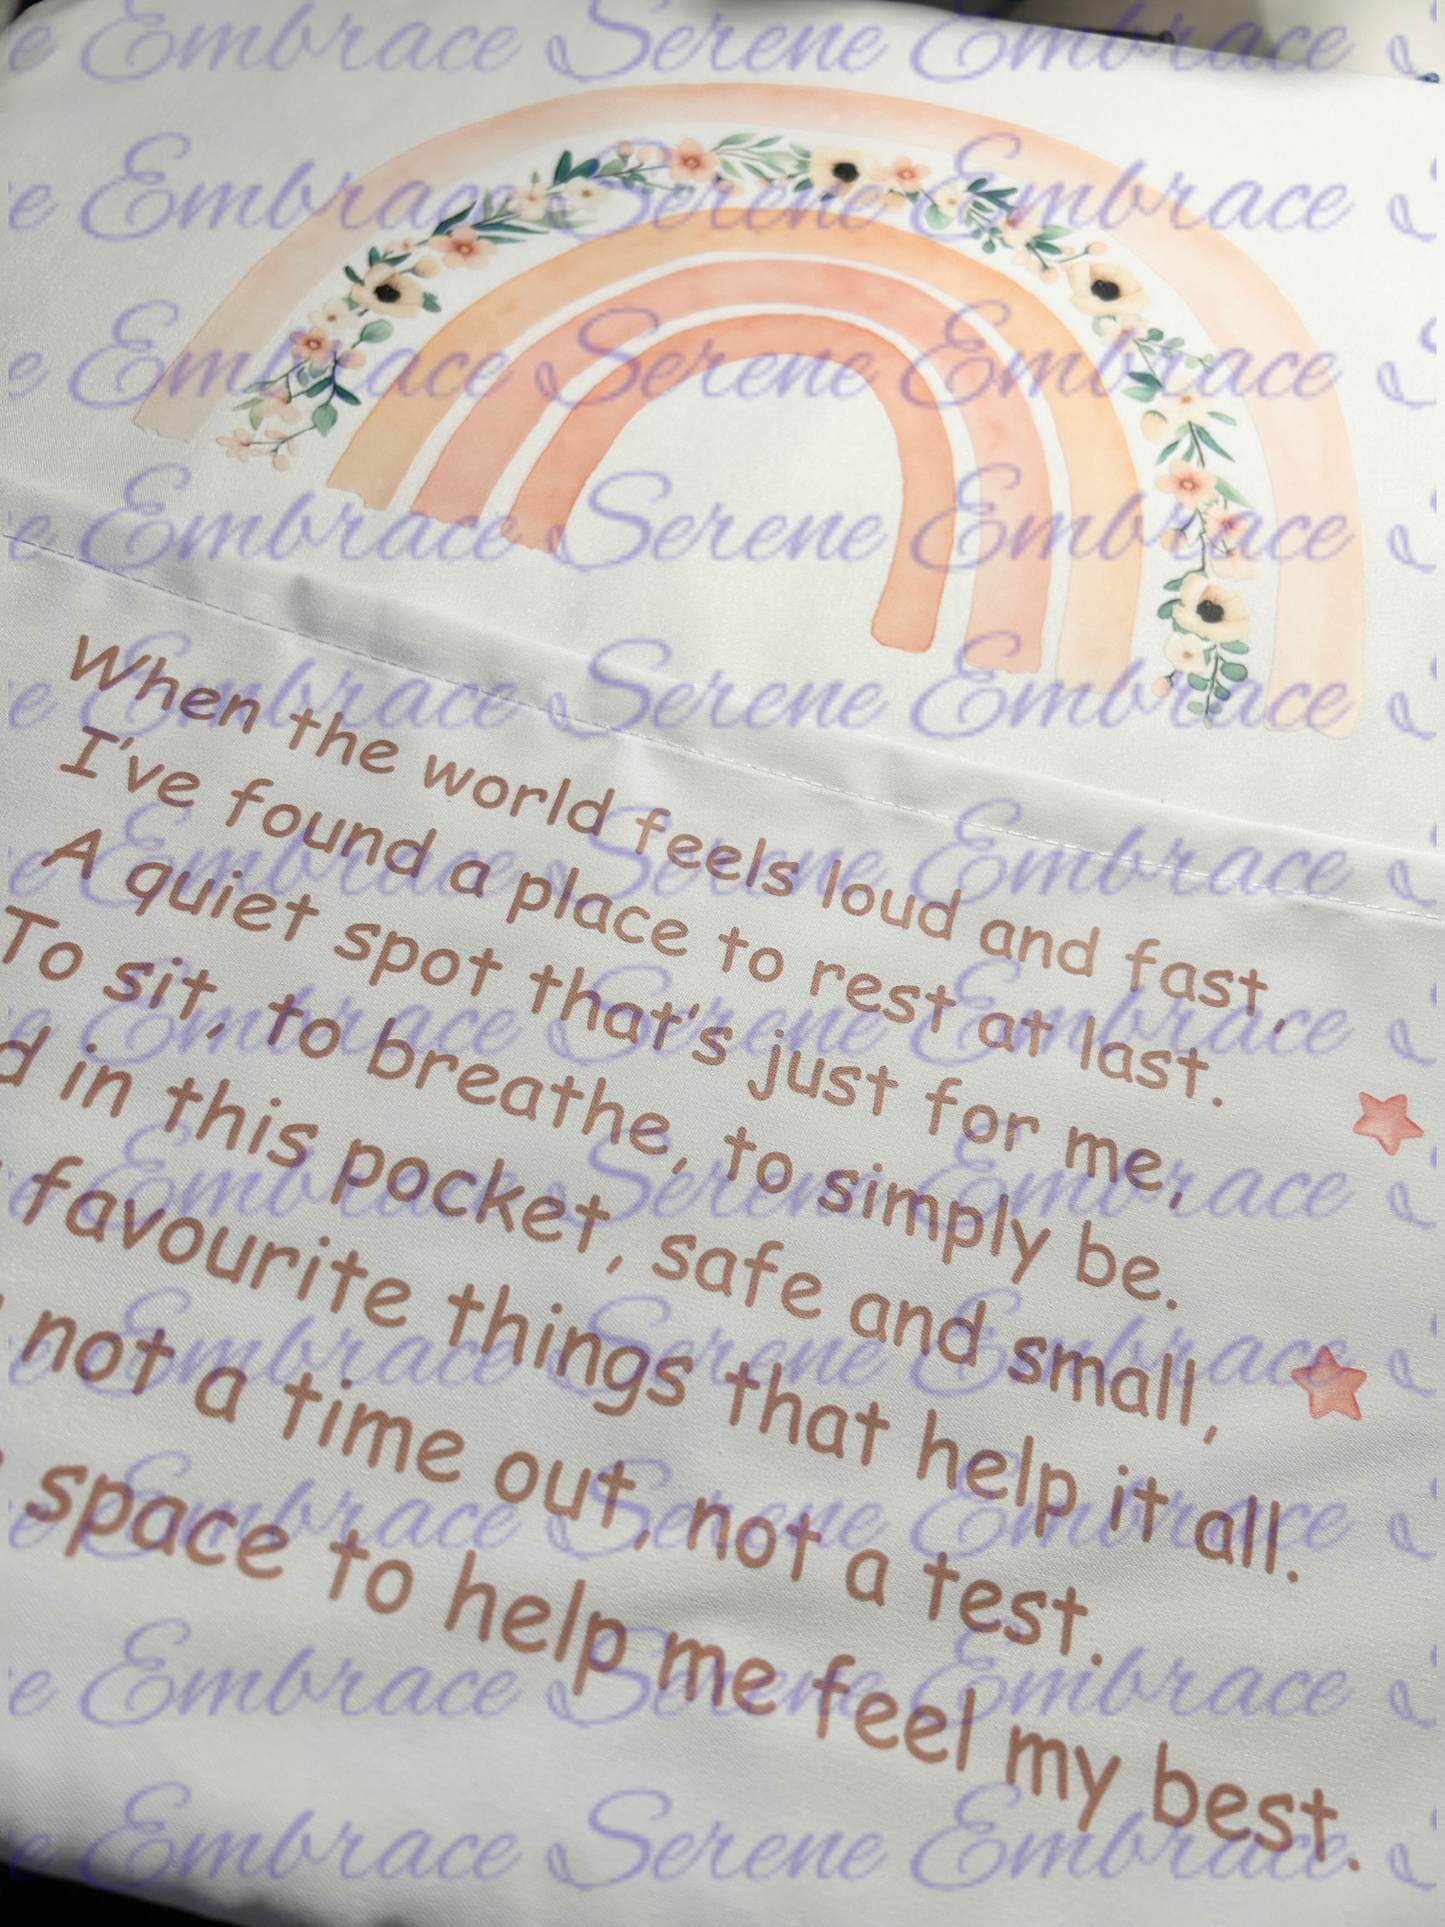 e Embrace Serene Embrace S
e Embrace Serene Embrace S
e Embrace Serene Embrace S
e Embrace Serene Embrace S
e Embrace Serene Embrace S
When the world feels loud and fast,
I've found a place to rest at last.
A quiet spot that's just for me,
To sit, to breathe, to simply be.
d in this pocket, safe and small,
favourite things that help it all.
not a time out, not a test.
space to help me feel my best.
e Embrace Serene Embrace S
e Embrace Serene Embrace S
e Embrace Serene Embrace S
e Embrace Serene Embrace S
e Embrace Serene Embrace S
e Embrace Serene Embrace S
e Embrace Serene Embrace S